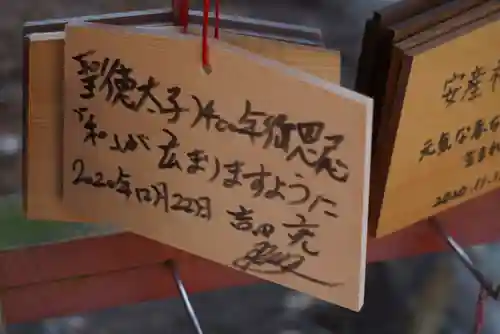 聖徳太子1400年御恩忌
「和」が広まりますように
2020年12月22日 吉田 充
安産祈
元気な
生まれ
2020.11